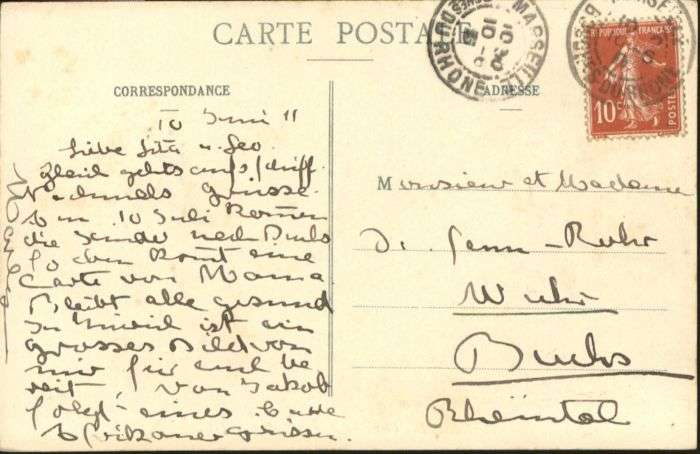 CARTE POSTALE
CORRESPONDANCE
ADRESSE
MARSEILLE
RHONE
REPUBLIQUE FRANÇAISE
10c
POSTES
10 Juni 11
Liebe Sita u. Geo
Gleich gehts aufs Schiff.
Nochmals Grüsse.
Am 10 Juli kommen
die nach Buchs
So eben kommt eine
Carte von Mama
Bleibt alle gesund
In Zürich ist ein
grosses Bild von
mir für euch be
reit, von Jakob
folgt eines
Afrikaner grüssen.
Monsieur et Madame
Dr. Senn-Rohr
Wuhr
Buchs
Rheintal